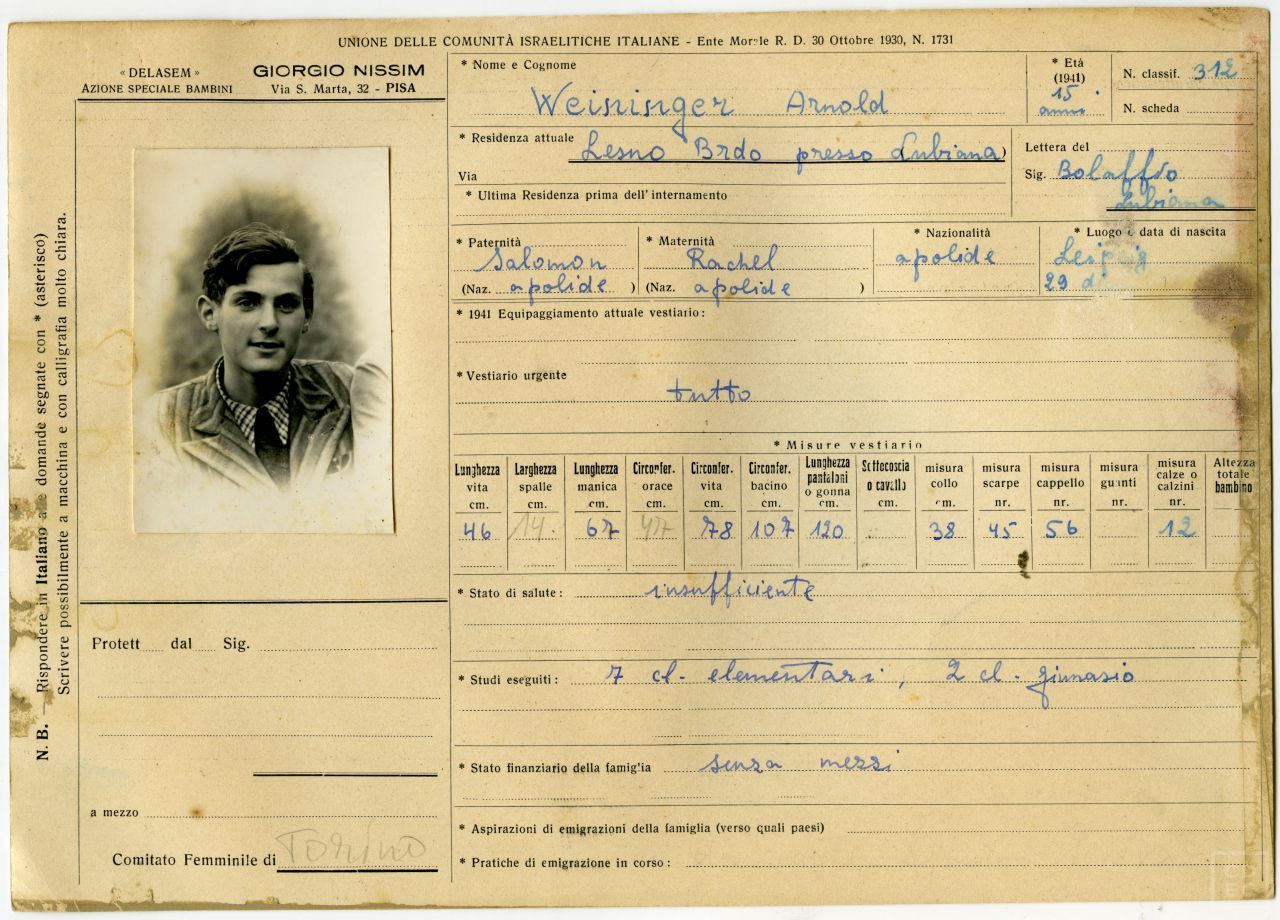 UNIONE DELLE COMUNITÀ ISRAELITICHE ITALIANE - Ente Morale R. D. 30 Ottobre 1930, N. 1731
« DELASEM »
AZIONE SPECIALE BAMBINI
GIORGIO NISSIM
Via S. Marta, 32 - PISA
N. B. — Rispondere in Italiano alle domande segnate con * (asterisco)
Scrivere possibilmente a macchina e con calligrafia molto chiara.
* Nome e Cognome
Weininger Arnold
* Età
(1941)
15
anni
N. classif. 312
N. scheda
* Residenza attuale Lesno Brdo presso Lubiana)
Via
* Ultima Residenza prima dell'internamento
Lettera del
Sig. Bolaffio
Lubiana
* Paternità
Salomon
(Naz. apolide )
* Maternità
Rachel
(Naz. apolide )
* Nazionalità
apolide
* Luogo e data di nascita
Leipzig
29
* 1941 Equipaggiamento attuale vestiario:
* Vestiario urgente
tutto
* Misure vestiario
Lunghezza vita cm. 46
Larghezza spalle cm. 14
Lunghezza manica cm. 67
Circonfer. orace cm.
Circonfer. vita cm. 78
Circonfer. bacino cm. 107
Lunghezza pantaloni o gonna cm. 120
Sottocoscia o cavallo cm.
misura collo cm. 38
misura scarpe nr. 45
misura cappello nr. 56
misura guanti nr.
misura calze o calzini nr. 12
Altezza totale bambino
* Stato di salute: insufficiente
* Studi eseguiti: 7 cl. elementari, 2 cl. ginnasio
* Stato finanziario della famiglia senza mezzi
* Aspirazioni di emigrazioni della famiglia (verso quali paesi)
* Pratiche di emigrazione in corso:
Protett dal Sig.
a mezzo
Comitato Femminile di Torino